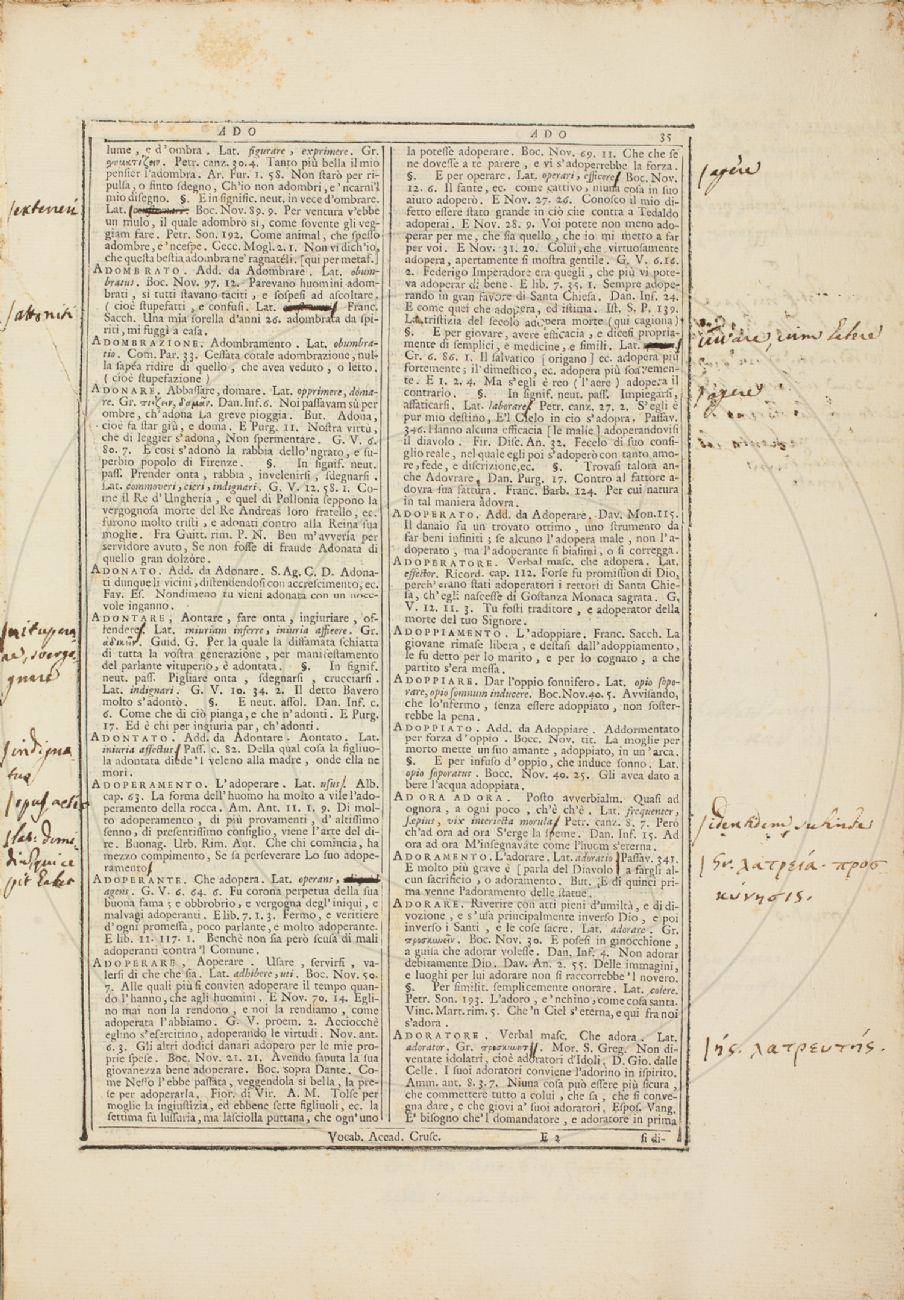 ADO
ADO 35
lume, e d'ombra. Lat. figurare, exprimere. Gr.
Petr. canz. 30. 4. Tanto più bella il mio
pensier l'adombra. Ar. Fur. 1. 58. Non starò per ri-
pulsa, o finto sdegno, Ch'io non adombri, e 'ncarni'l
mio disegno. §. E in signific. neut. in vece d'ombrare.
Lat. Boc. Nov. 89. 9. Per ventura v'ebbe
un mulo, il quale adombrò sì, come sovente gli veg-
giam fare. Petr. Son. 192. Come animal, che spesso
adombre, e 'ncespe. Cecc. Mogl. 2. 1. Non vi dich'io,
che questa bestia adombra ne' ragnatéli. [qui per metaf.]
ADOMBRATO. Add. da Adombrare. Lat. obum-
bratus. Boc. Nov. 97. 12. Parevano huomini adom-
brati, sì tutti stavano taciti, e sospesi ad ascoltare.
(cioè stupefatti, e confusi. Lat. Franc.
Sacch. Una mia sorella d'anni 26. adombrata da spi-
riti, mi fuggì a casa.
ADOMBRAZIONE. Adombramento. Lat. obumbra-
tio. Com. Par. 33. Cessata cotale adombrazione, nul-
la sapéa ridire di quello, che avea veduto, o letto.
(cioè stupefazione)
ADONARE. Abbassare, domare. Lat. opprimere, doma-
re. Gr. Dan. Inf. 6. Noi passavam sù per
ombre, ch'adona La greve pioggia. But. Adona,
cioè fa star giù, e doma. E Purg. 11. Nostra virtù,
che di leggier s'adona, Non spermentare. G. V. 6.
80. 7. E così s'adonò la rabbia dello'ngrato, e su-
perbio popolo di Firenze. §. In signif. neut.
pass. Prender onta, rabbia, invelenirsi, sdegnarsi.
Lat. commoveri, cieri, indignari. G. V. 12. 58. 1. Co-
me il Re d'Ungheria, e quel di Pollonia seppono la
vergognosa morte del Re Andreas loro fratello, ec.
furono molto tristi, e adonati contro alla Reina sua
moglie. Fra Guitt. rim. P. N. Ben m'avverìa per
servidore avuto, Se non fosse di fraude Adonata di
quello gran dolzóre.
ADONATO. Add. da Adonare. S. Ag. C. D. Adona-
ti dunque li vicini, distendendosi con accrescimento, ec.
Fav. Es. Nondimeno tu vieni adonata con un noce-
vole inganno.
ADONTARE, Aontare, fare onta, ingiuriare, of-
fendere. Lat. iniuriam inferre, iniuria afficere. Gr.
Guid. G. Per la quale la diffamata schiatta
di tutta la vostra generazione, per manifestamento
del parlante vituperio, è adontata. §. In signif.
neut. pass. Pigliare onta, sdegnarsi, crucciarsi.
Lat. indignari. G. V. 10. 34. 2. Il detto Bavero
molto s'adontò. §. E neut. assol. Dan. Inf. c.
6. Come che di ciò pianga, e che n'adonti. E Purg.
17. Ed è chi per ingiuria par, ch'adonti.
ADONTATO. Add. da Adontare. Aontato. Lat.
iniuria affectus. Pass. c. 82. Della qual cosa la figliuo-
la adontata diede'l veleno alla madre, onde ella ne
mori.
ADOPERAMENTO. L'adoperare. Lat. usus. Alb.
cap. 63. La forma dell'huomo ha molto a vile l'ado-
peramento della rocca. Am. Ant. 11. 1. 9. Di mol-
to adoperamento, di più provamenti, d'altissimo
senno, di presentissimo consiglio, viene l'arte del di-
re. Buonag. Urb. Rim. Ant. Che chi comincia, ha
mezzo compimento, Se sa perseverare Lo suo adope-
ramento
ADOPERANTE. Che adopera. Lat. operans,
agens. G. V. 6. 64. 6. Fu corona perpetua della sua
buona fama; e obbrobrio, e vergogna degl'iniqui, e
malvagi adoperanti. E lib. 7. 1. 3. Fermo, e veritiere
d'ogni promessa, poco parlante, e molto adoperante.
E lib. 11. 117. 1. Benchè non sia però scusa di mali
adoperanti contra'l Comune.
ADOPERARE, Aoperare. Usare, servirsi, va-
lersi di che che sia. Lat. adhibere, uti. Boc. Nov. 50.
7. Alle quali più si convien adoperare il tempo quan-
do l'hanno, che agli huomini. E Nov. 70. 14. Egli-
no mai non la rendono, e noi la rendiamo, come
adoperata l'abbiamo. G. V. proem. 2. Acciocchè
eglino s'esercitino, adoperando le virtudi. Nov. ant.
6. 3. Gli altri dodici danari adopero per le mie pro-
prie spese. Boc. Nov. 21. 21. Avendo saputa la sua
giovanezza bene adoperare. Boc. sopra Dante. Co-
me Nesso l'ebbe passata, veggendola sì bella, la pre-
se per adoperarla. Fior. di Vir. A. M. Tolse per
moglie la ingiustizia, ed ebbene sette figliuoli, ec. la
settima fu lussuria, ma lasciolla puttana, che ogn'uno
la potesse adoperare. Boc. Nov. 69. 11. Che che se
ne dovesse a te parere, e vi s'adoperrebbe la forza.
§. E per operare. Lat. operari, efficere. Boc. Nov.
12. 6. Il fante, ec. come cattivo, niuna cosa in suo
aiuto adoperò. E Nov. 27. 26. Conosco il mio di-
fetto essere stato grande in ciò che contra a Tedaldo
adoperai. E Nov. 28. 9. Voi potete non meno ado-
perar per me, che sia quello, che io mi metto a far
per voi. E Nov. 31. 29. Colui, che virtuosamente
adopera, apertamente si mostra gentile. G. V. 6. 16.
2. Federigo Imperadore era quegli, che più vi pote-
va adoperar di bene. E lib. 7. 35. 1. Sempre adope-
rando in gran favore di Santa Chiesa. Dan. Inf. 24.
E come quei che adopera, ed istima. Ist. S. P. 139.
La tristizia del secolo adopera morte (qui cagiona)
§. E per giovare, avere efficacia, e dicesi propria-
mente di semplici, e medicine, e simili. Lat.
Cr. 6. 86. 1. Il salvatico [origano] ec. adopera più
fortemente; il dimestico, ec. adopera più soavemen-
te. E 1. 2. 4. Ma s'egli è reo (l'aere) adopera il
contrario. §. In signif. neut. pass. Impiegarsi,
affaticarsi. Lat. laborare. Petr. canz. 27. 2. S'egli è
pur mio destino, E'l Cielo in cio s'adopra. Passav.
346. Hanno alcuna efficacia [le malie] adoperandovisi
il diavolo. Fir. Disc. An. 32. Fecelo di suo consi-
glio reale, nel quale egli poi s'adoperò con tanto amo-
re, fede, e discrizione, ec. §. Trovasi talora an-
che Adovrare. Dan. Purg. 17. Contro al fattore a-
dovra sua fattura. Franc. Barb. 124. Per cui natura
in tal maniera adovra.
ADOPERATO. Add. da Adoperare. Dav. Mon. 115.
Il danaio fu un trovato ottimo, uno strumento da
far beni infiniti; se alcuno l'adopera male, non l'a-
doperato, ma l'adoperante si biasimi, o si corregga.
ADOPERATORE. Verbal masc. che adopera. Lat.
effector. Ricord. cap. 112. Forse fu promission di Dio,
perch'erano stati adoperatori i rettori di Santa Chie-
sa, ch'egli nascesse di Gostanza Monaca sagrata. G.
V. 12. 11. 3. Tu fosti traditore, e adoperator della
morte del tuo Signore.
ADOPPIAMENTO. L'adoppiare. Franc. Sacch. La
giovane rimase libera, e destasi dall'adoppiamento,
le fu detto per lo marito, e per lo cognato, a che
partito s'era messa.
ADOPPIARE. Dar l'oppio sonnifero. Lat. opio sopo-
rare, opio somnum inducere. Boc. Nov. 40. 5. Avvisando,
che lo'nfermo, senza essere adoppiato, non soster-
rebbe la pena.
ADOPPIATO. Add. da Adoppiare. Addormentato
per forza d'oppio. Bocc. Nov. tit. La moglie per
morto mette un suo amante, adoppiato, in un'arca.
§. E per infuso d'oppio, che induce sonno. Lat.
opio soporatus. Bocc. Nov. 40. 25. Gli avea dato a
bere l'acqua adoppiata.
ADORA ADORA. Posto avverbialm. Quasi ad
ognora, a ogni poco, ch'è ch'è. Lat. frequenter,
sæpius, vix interiecta morula. Petr. canz. 8. 7. Però
ch'ad ora ad ora S'erge la speme. Dan. Inf. 15. Ad
ora ad ora M'insegnavate come l'huom s'eterna.
ADORAMENTO. L'adorare. Lat. adoratio. Passav. 341.
E molto più grave è [parla del Diavolo] a fargli al-
cun sacrificio, o adoramento. But. E di quinci pri-
ma venne l'adoramento delle statue.
ADORARE. Riverire con atti pieni d'umiltà, e di di-
vozione, e s'usa principalmente inverso Dio, e poi
inverso i Santi, e le cose sacre. Lat. adorare. Gr.
προσκυνεῖν. Boc. Nov. 30. E posesi in ginocchione,
a guisa che adorar volesse. Dan. Inf. 4. Non adorar
debitamente Dio. Dav. An. 2. 55. Delle immagini,
e luoghi per lui adorare non si raccorrebbe'l novero.
§. Per similit. semplicemente onorare. Lat. colere.
Petr. Son. 193. L'adoro, e 'nchino, come cosa santa.
Vinc. Mart. rim. 5. Che'n Ciel s'eterna, e qui fra noi
s'adora.
ADORATORE. Verbal masc. Che adora. Lat.
adorator. Gr. Mor. S. Greg. Non di-
ventate idolatri, cioè adoratori d'Idoli. D. Gio. dalle
Celle. I suoi adoratori conviene l'adorino in ispirito.
Amm. ant. 8. 3. 7. Niuna cosa può essere più sicura,
che commettere tutto a colui, che sa, che si conve-
gna dare, e che giovi a' suoi adoratori. Espos. Vang.
E' bisogno che'l domandatore, e adoratore in prima
Vocab. Accad. Crusc. E 2 si di-
/exterreri
/attoniti
/vitupera
re, svergo
gnare
/indigna
tus
/opus, actio
/agere
/identidem, subinde
/Gr. λατρεία. προσ
κύνησις.
/ής. λατρευτής.